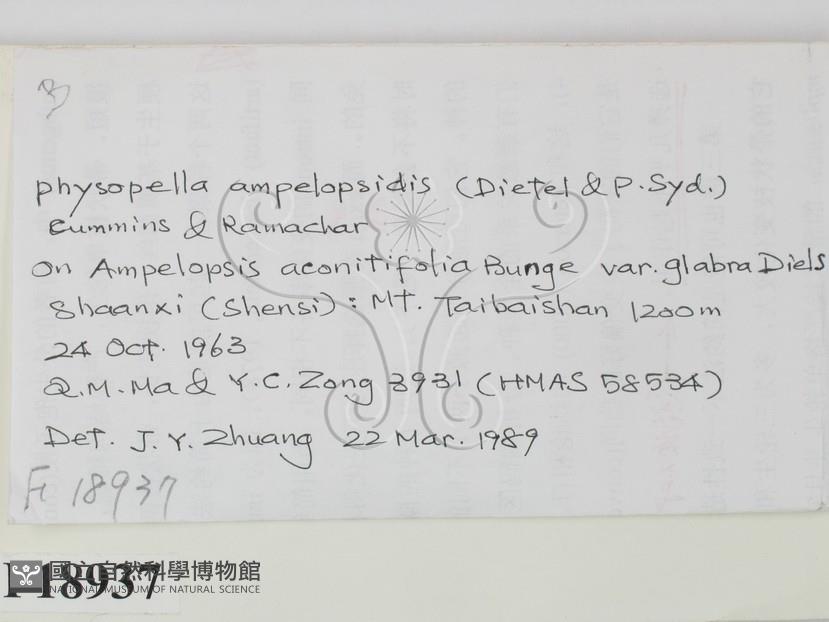 physopella ampelopsidis (Dietel & P. Syd.)
Cummins & Ramachar
on Ampelopsis aconitifolia Bunge var. glabra Diels
Shaanxi (Shensi): Mt. Taibaishan 1200m
24 Oct. 1963
Q.M. Ma & Y.C. Zong 3931 (HMAS 58534)
Det. J. Y. Zhuang 22 Mar. 1989
F 18937
國立自然科學博物館
NATIONAL MUSEUM OF NATURAL SCIENCE
18937